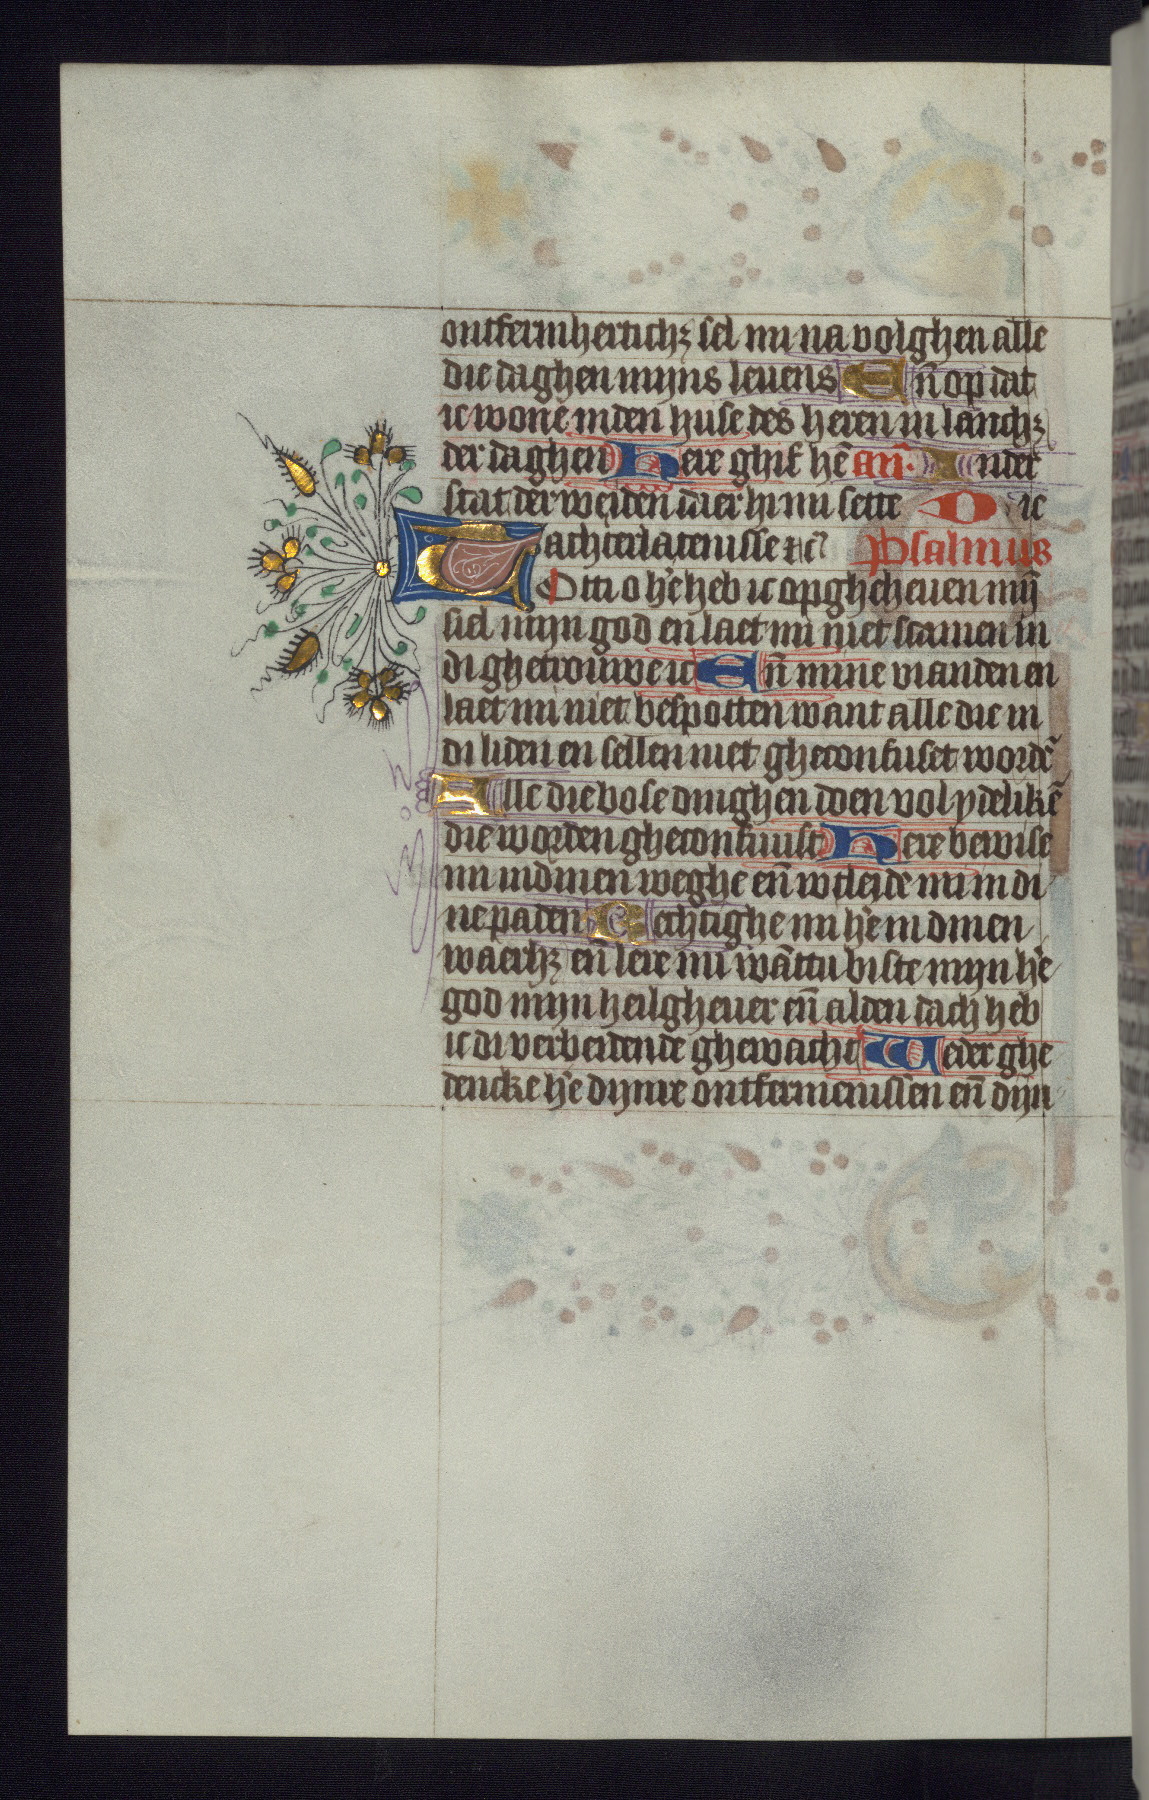 ontfermhertichꝫ sel mi na volghen alle
die daghen mijns leuens En̄ op dat
ic wone inden huse des heren in lanchꝫ
der daghen Here ghif hē an̄. Inder
stat der weiden daer hi mi sette O ic
achterlatenisse ⁊c̄ Psalmus
Tot ti o hr̄e heb ic op gheheuen mijn
siel mijn god en laet mi niet scamen in
di ghetrouwe ic En̄ mine vianden en
laet mi niet bespotten want alle die in
di liden en sellen niet gheconfuset wordē
Alle die bose dinghen doen vol ydelikē
die worden gheconfuust Here bewise
mi in dinen weghe en̄ wtleide mi in di
ne paden Gerechtighe mi hr̄e in dinen
waerhꝫ en̄ lere mi wāttu biste mijn hr̄e
god mijn heilgheuer en̄ alden dach heb
ic di verbeidende ghewacht Weder ghe
dencke hr̄e dijnre ontfermenissen en̄ dijn